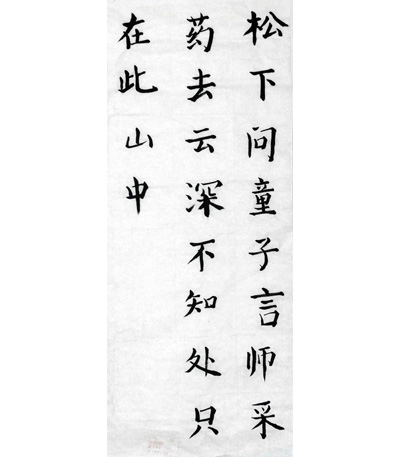 松下问童子言师采
药去云深不知处只
在此山中